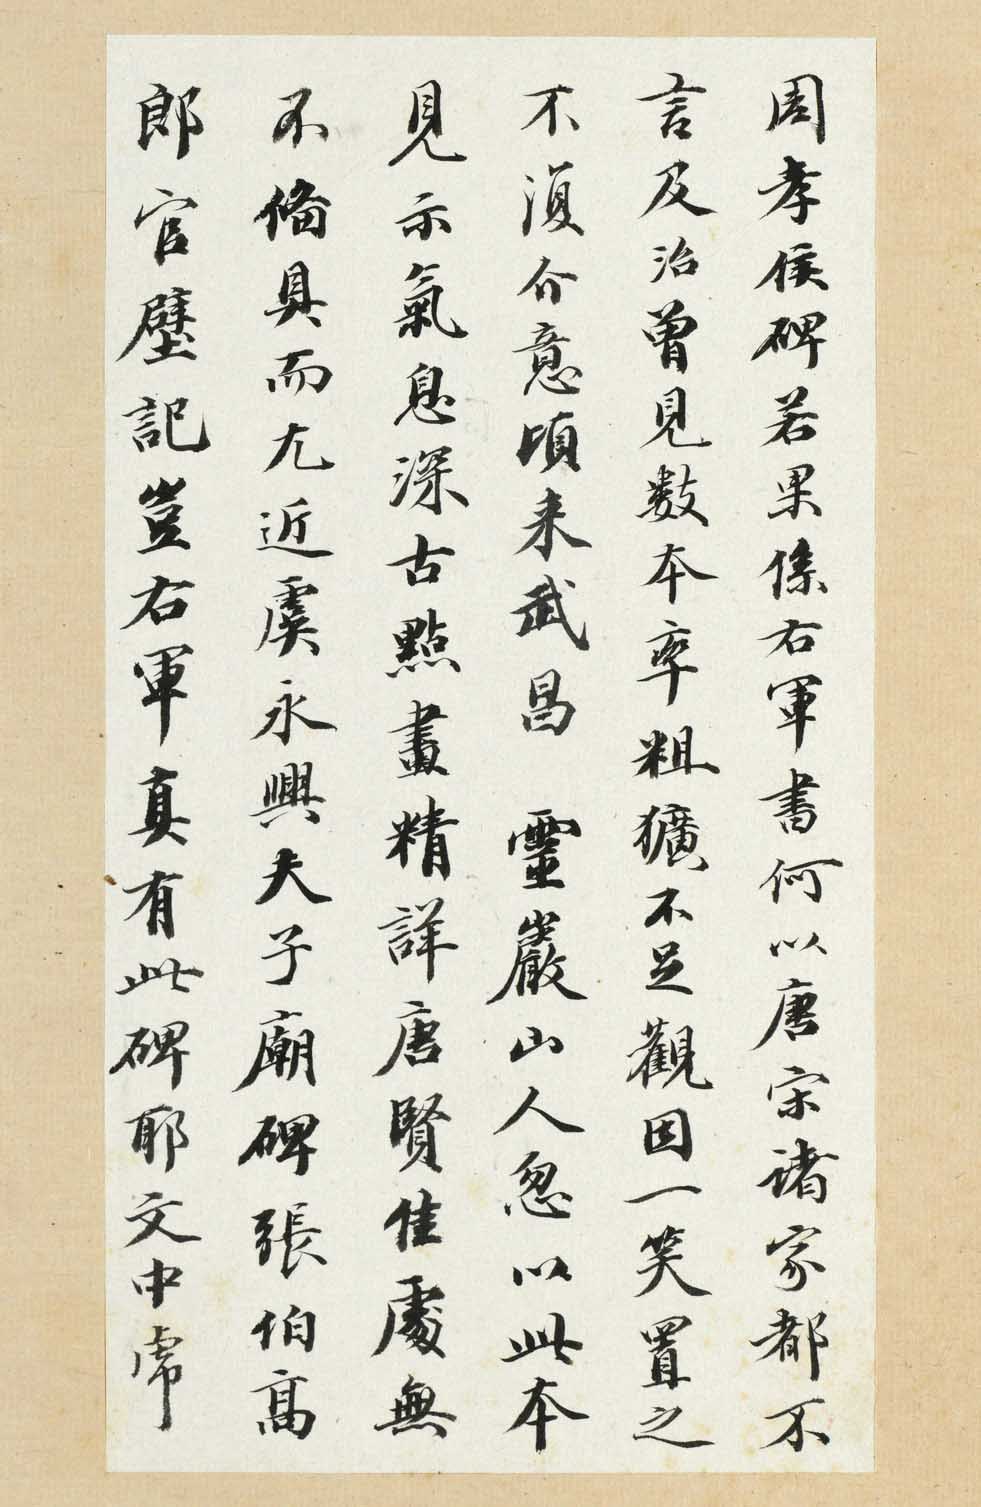 周孝侯碑若果係右軍書何以唐宋諸家都不
言及治曾見數本率粗獷不足觀因一笑置之
不復介意頃来武昌 靈巖山人忽以此本
見示氣息深古點畫精詳唐賢佳處無
不俻具而尤近虞永興夫子廟碑張伯高
郎官壁記豈右軍真有此碑耶文中虎